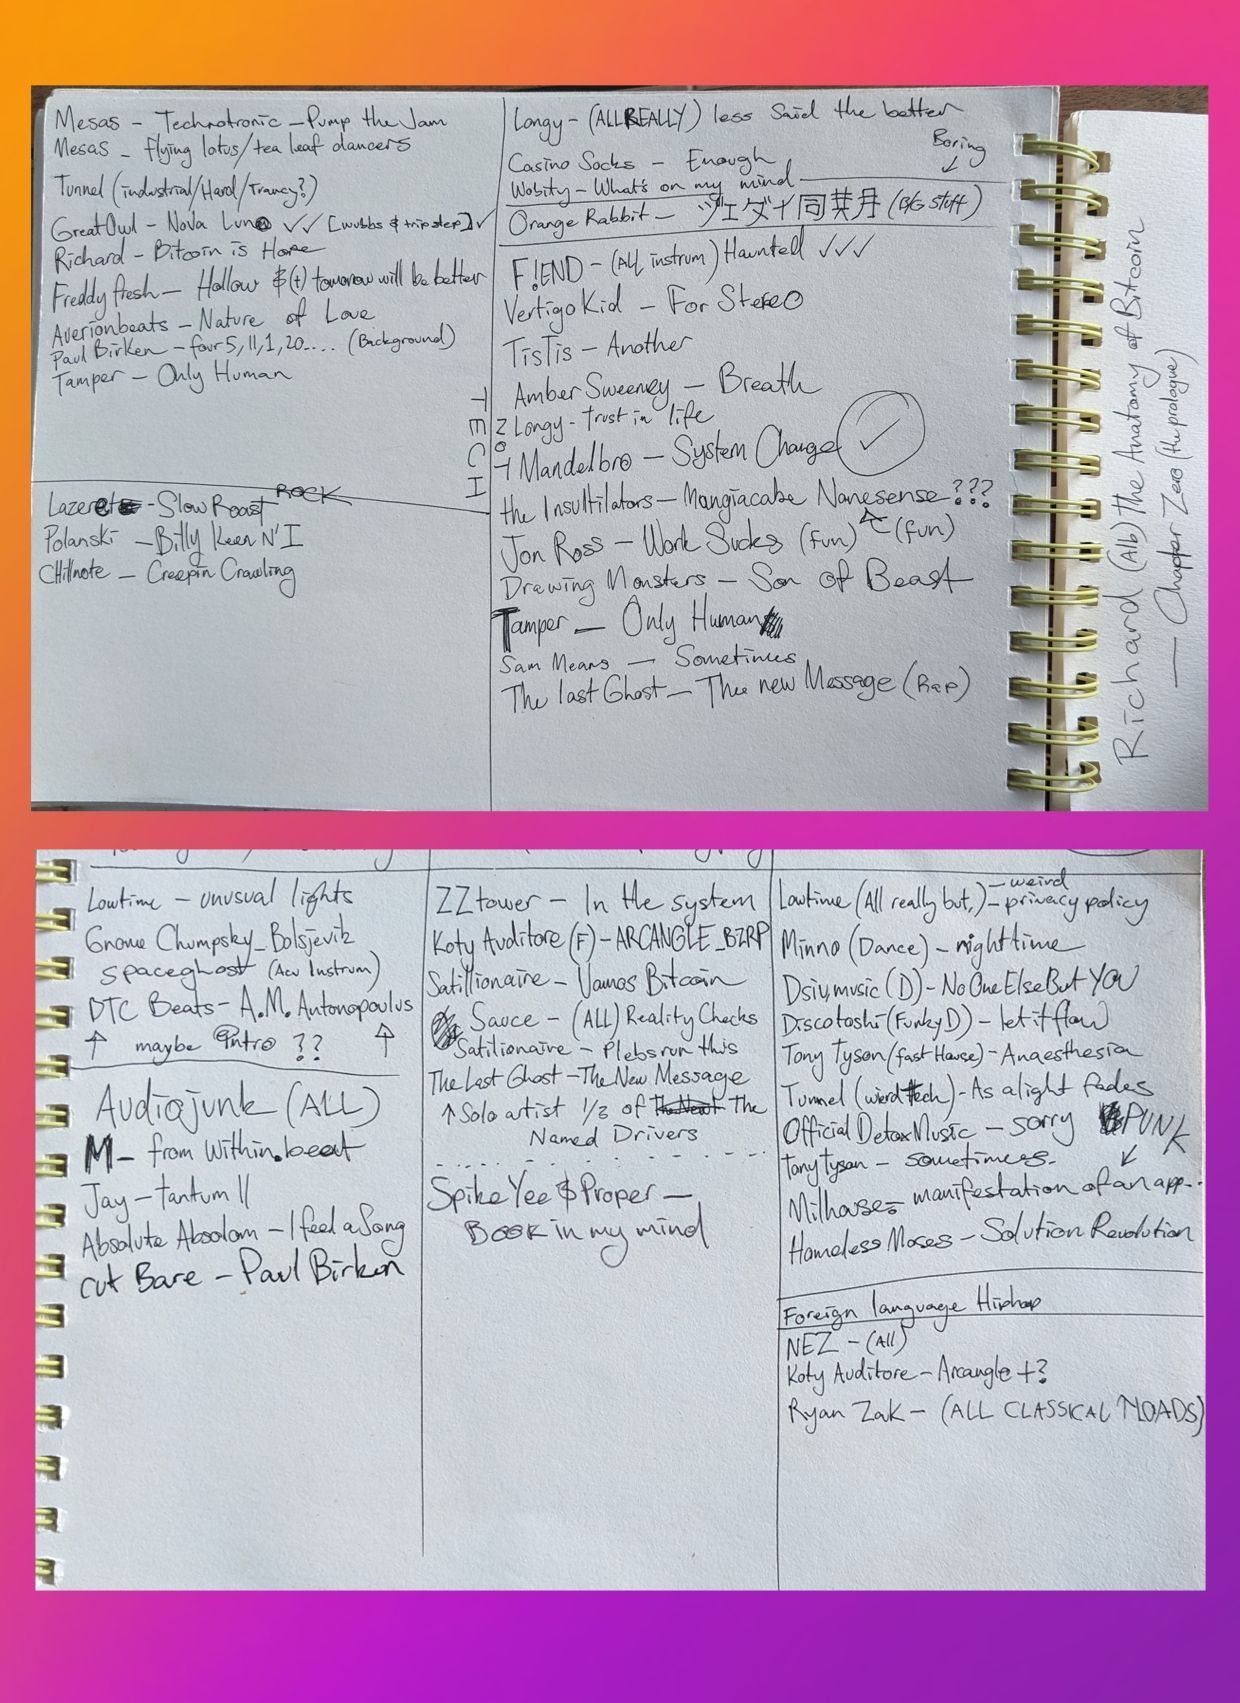 Mesas - Technotronic - Pump the Jam
Mesas - flying lotus/tea leaf dancers
Tunnel (industrial/Hard/Trancy?)
Great Owl - Nova Luna ✓✓ [wubbs & tripstep] ✓
Richard - Bitcoin is Hope
Freddy fresh - Hollow &(+) tomorrow will be better
Averionbeats - Nature of Love
Paul Birken - four 5, 11, 1, 20.... (Background)
Tamper - Only Human
ROCK
Lazerete - Slow Roast
Polanski - Billy Keen N' I
Chillnote - Creepin Crawling
Longy - (ALL REALLY) less said the better
Boring
Casino Socks - Enough
Wobity - What's on my mind
Orange Rabbit - (B/G stuff)
F!END - (ALL instrum) Haunted ✓✓✓
Vertigo Kid - For Stereo
TisTis - Another
Amber Sweeney - Breath
Longy - trust in life
Mandelbro - System Change ✓
the Insultilators - Mangiacake Nanesense ???
Jon Ross - Work Sucks (fun) (fun)
Drawing Monsters - Son of Beast
Tamper - Only Human
Sam Means - Sometimes
The last Ghost - Thee new Message (Rap)
Richard (Alb) The Anatomy of Bitcoin
- Chapter Zero (the prologue)
Lowtime - unusual lights
Gnome Chumpsky - Bolsjevik
spaceghost (Acu Instrum)
BTC Beats - A.M. Antonopoulus
↑ maybe intro ?? ↑
Audiojunk (ALL)
M - from Within.beat
Jay - tantum 11
Absolute Absolom - I feel a Song
cut Bare - Paul Birken
ZZtower - In the system
Koty Auditore (F) - ARCANGLE_BZRP
Satillionaire - Vamos Bitcoin
Sauce - (ALL) Reality Checks
Satilionaire - Plebs run this
The Last Ghost - The New Message
↑ Solo artist 1/2 of The
Named Drivers
Spike Yee & Proper -
Book in my mind
Lowtime (All really but,) - weird
- privacy policy
Minno (Dance) - night time
Dsiv,music (D) - No One Else But YOU
Discotoshi (Funky D) - let it flow
Tony Tyson (fast House) - Anaesthesia
Tunnel (wierd tech) - As a light fades
Official Detox Music - sorry PUNK
Tony Tyson - sometimes.
Milhouse - manifestation of an app..
Homeless Moses - Solution Revolution
Foreign language Hiphop
NEZ - (All)
Koty Auditore - Arcangle +?
Ryan Zak - (ALL CLASSICAL NOADS)